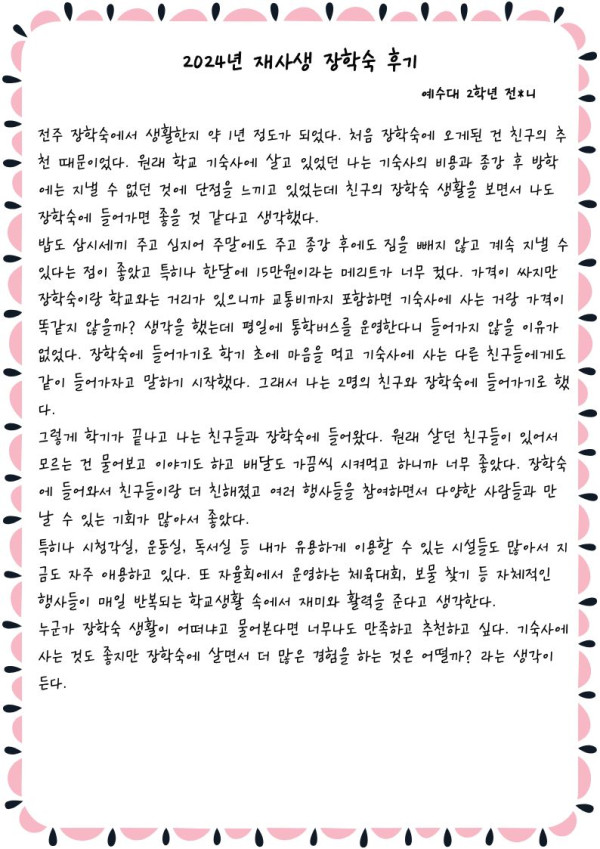 2024년 재사생 장학숙 후기
예수대 2학년 전*니
전주 장학숙에서 생활한지 약 1년 정도가 되었다. 처음 장학숙에 오게된 건 친구의 추
천 때문이었다. 원래 학교 기숙사에 살고 있었던 나는 기숙사의 비용과 종강 후 방학
에는 지낼 수 없던 것에 단점을 느끼고 있었는데 친구의 장학숙 생활을 보면서 나도
장학숙에 들어가면 좋을 것 같다고 생각했다.
밥도 삼시세끼 주고 심지어 주말에도 주고 종강 후에도 짐을 빼지 않고 계속 지낼 수
있다는 점이 좋았고 특히나 한달에 15만원이라는 메리트가 너무 컸다. 가격이 싸지만
장학숙이랑 학교와는 거리가 있으니까 교통비까지 포함하면 기숙사에 사는 거랑 가격이
똑같지 않을까? 생각을 했는데 평일에 통학버스를 운영한다니 들어가지 않을 이유가
없었다. 장학숙에 들어가기로 학기 초에 마음을 먹고 기숙사에 사는 다른 친구들에게도
같이 들어가자고 말하기 시작했다. 그래서 나는 2명의 친구와 장학숙에 들어가기로 했
다.
그렇게 학기가 끝나고 나는 친구들과 장학숙에 들어왔다. 원래 살던 친구들이 있어서
모르는 건 물어보고 이야기도 하고 배달도 가끔씩 시켜먹고 하니까 너무 좋았다. 장학숙
에 들어와서 친구들이랑 더 친해졌고 여러 행사들을 참여하면서 다양한 사람들과 만
날 수 있는 기회가 많아서 좋았다.
특히나 시청각실, 운동실, 독서실 등 내가 유용하게 이용할 수 있는 시설들도 많아서 지
금도 자주 애용하고 있다. 또 자율회에서 운영하는 체육대회, 보물 찾기 등 자체적인
행사들이 매일 반복되는 학교생활 속에서 재미와 활력을 준다고 생각한다.
누군가 장학숙 생활이 어떠냐고 물어본다면 너무나도 만족하고 추천하고 싶다. 기숙사에
사는 것도 좋지만 장학숙에 살면서 더 많은 경험을 하는 것은 어떨까? 라는 생각이
든다.